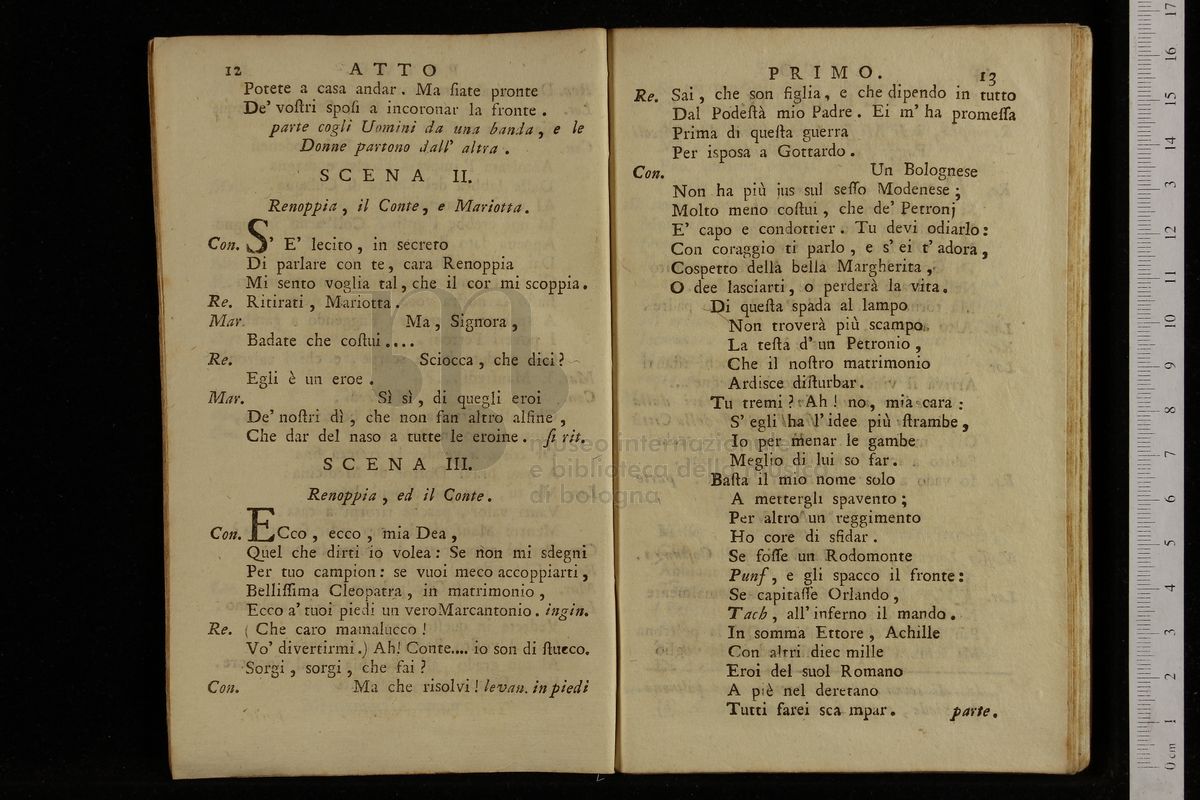 12 ATTO
Potete a casa andar. Ma ſiate pronte
De' voſtri spoſi a incoronar la fronte.
parte cogli Uomini da una banda, e le
Donne partono dall' altra.
SCENA II.
Renoppia, il Conte, e Mariotta.
Con. S' E' lecito, in secreto
Di parlare con te, cara Renoppia
Mi sento voglia tal, che il cor mi scoppia.
Re. Ritirati, Mariotta.
Mar. Ma, Signora,
Badate che coſtui....
Re. Sciocca, che dici?
Egli è un eroe.
Mar. Sì sì, di quegli eroi
De' noſtri dì, che non fan altro alfine,
Che dar del naso a tutte le eroine. ſi rit.
SCENA III.
Renoppia, ed il Conte.
Con. ECco, ecco, mia Dea,
Quel che dirti io volea: Se non mi sdegni
Per tuo campion: se vuoi meco accoppiarti,
Belliſſima Cleopatra, in matrimonio,
Ecco a' tuoi piedi un veroMarcantonio. ingin.
Re. ( Che caro mamalucco!
Vo' divertirmi.) Ah! Conte.... io son di ſtucco.
Sorgi, sorgi, che fai?
Con. Ma che risolvi! levan. in piedi
PRIMO. 13
Re. Sai, che son figlia, e che dipendo in tutto
Dal Podeſtà mio Padre. Ei m' ha promeſſa
Prima di queſta guerra
Per isposa a Gottardo.
Con. Un Bolognese
Non ha più jus sul seſſo Modenese;
Molto meno coſtui, che de' Petronj
E' capo e condottier. Tu devi odiarlo:
Con coraggio ti parlo, e s' ei t' adora,
Cospetto della bella Margherita,
O dee lasciarti, o perderà la vita.
Di queſta spada al lampo
Non troverà più scampo
La teſta d' un Petronio,
Che il noſtro matrimonio
Ardisce diſturbar.
Tu tremi? Ah! no, mia cara:
S' egli ha l' idee più ſtrambe,
Io per menar le gambe
Meglio di lui so far.
Baſta il mio nome solo
A mettergli spavento;
Per altro un reggimento
Ho core di sfidar.
Se foſſe un Rodomonte
Punf, e gli spacco il fronte:
Se capitaſſe Orlando,
Tach, all' inferno il mando.
In somma Ettore, Achille
Con altri diec mille
Eroi del suol Romano
A piè nel deretano
Tutti farei sca mpar. parte.
museo internazionale
e biblioteca della musica
di bologna
0 cm 1 2 3 4 5 6 7 8 9 10 11 12 13 14 15 16 17